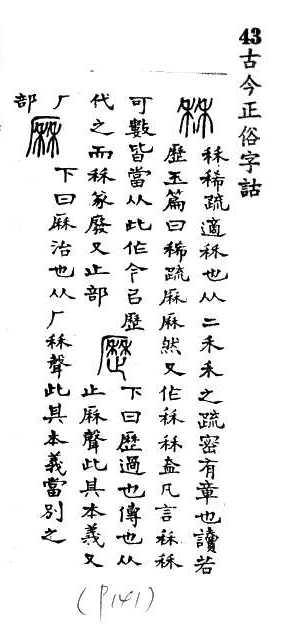 43古今正俗字詁
秝
秝稀疏適秝也从二禾禾之疏密有章也讀若
歷玉篇曰稀疏厤厤然又作秝秝盖凡言秝秝
可數皆當从此作今㠯歷
代之而秝篆廢又止部
歷
下曰歷過也傳也从
止厤聲此其本義又
厂
部
厤
下曰厤治也从厂秝聲
此其本義當別之
(P141)